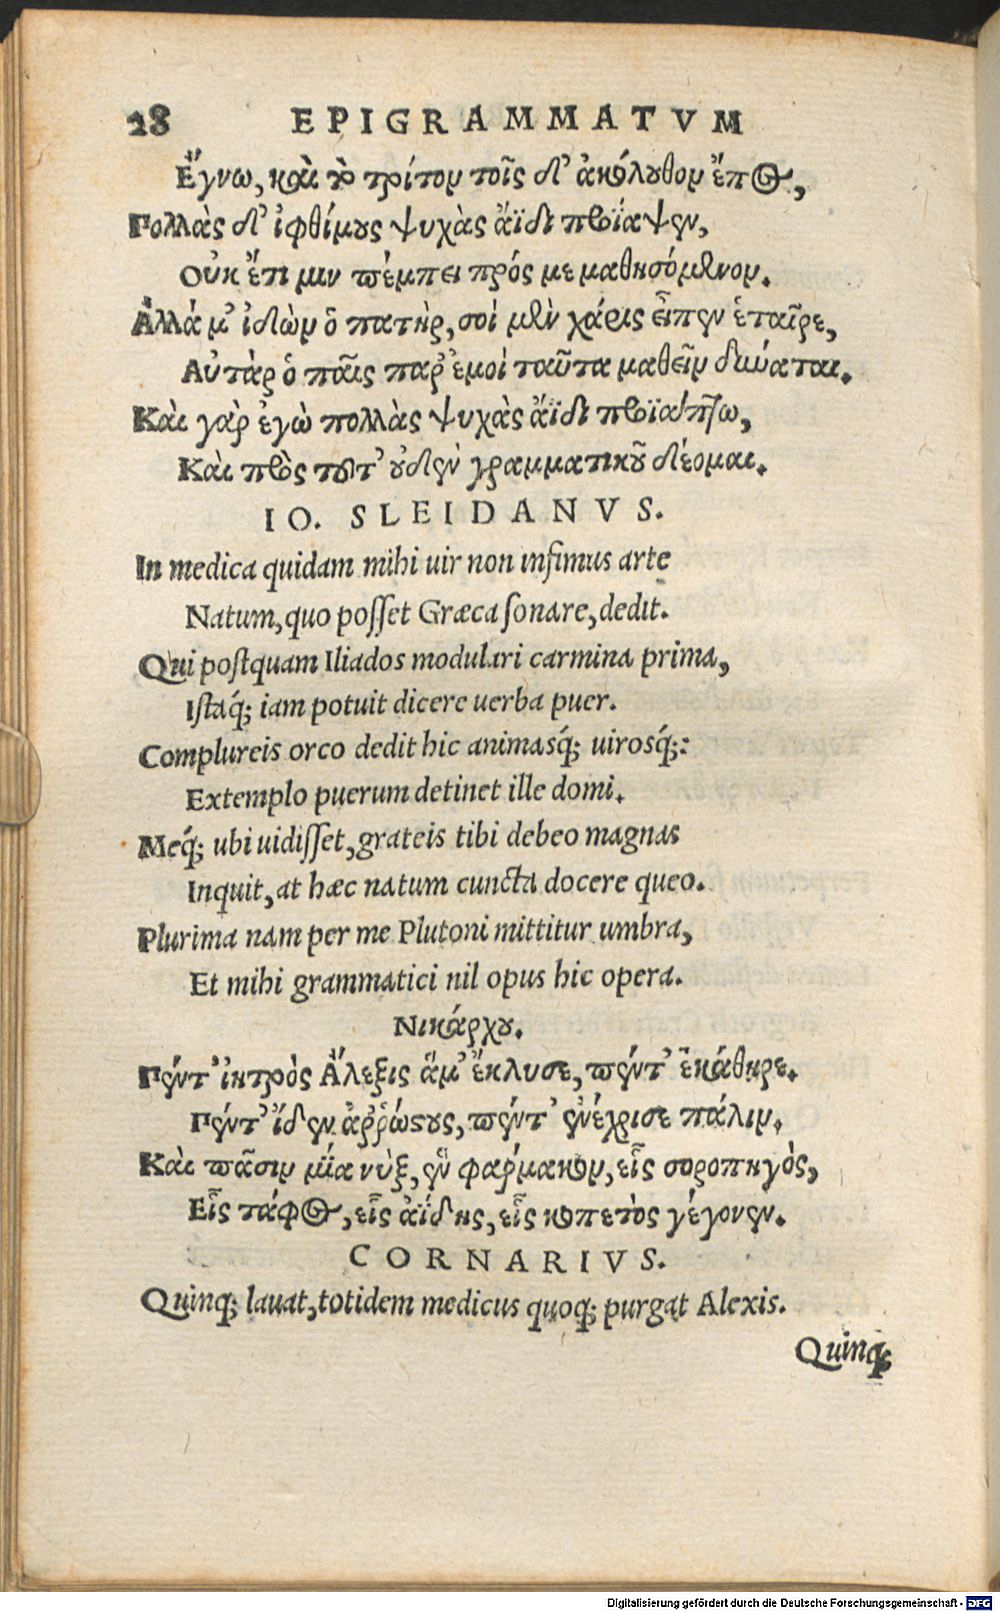 28 EPIGRAMMATVM
Ἔγνω, καὶ τὸ τρίτον τοῖς δ' ἀκόλουθον ἔπος,
Πολλὰς δ' ἰφθίμους ψυχὰς ἄϊδι προΐαψεν,
Οὐκ ἔτι μιν πέμπει πρός με μαθησόμενον.
Ἀλλά μ' ἰδὼν ὁ πατὴρ, σοὶ μὲν χάρις εἶπεν ἑταῖρε,
Αὐτὰρ ὁ παῖς παρ' ἐμοὶ ταῦτα μαθεῖν δύναται.
Καὶ γὰρ ἐγὼ πολλὰς ψυχὰς ἄϊδι προϊάπτω,
Καὶ πρὸς τοῦτ' οὐδὲν γραμματικοῦ δέομαι.
IO. SLEIDANVS.
In medica quidam mihi uir non infimus arte
Natum, quo posset Græca sonare, dedit.
Qui postquam Iliados modulari carmina prima,
Istaq́; iam potuit dicere uerba puer.
Complureis orco dedit hic animasq́; uirosq́;:
Extemplo puerum detinet ille domi.
Meq́; ubi uidisset, grateis tibi debeo magnas
Inquit, at hæc natum cuncta docere queo.
Plurima nam per me Plutoni mittitur umbra,
Et mihi grammatici nil opus hic opera.
Νικάρχου.
Πέντ' ἰητρὸς Ἄλεξις ἅμ' ἔκλυσε, πέντ' ἐκάθηρε.
Πέντ' ἴδεν ἀῤῥώςους, πέντ' ἐνέχρισε πάλιν.
Καὶ πᾶσιν μία νὺξ, ἓν φάρμακον, εἷς σοροπηγὸς,
Εἷς τάφος, εἷς ἀΐδης, εἷς κοπετὸς γέγονεν.
CORNARIVS.
Quinq; lauat, totidem medicus quoq; purgat Alexis.
Quinq;
Digitalisierung gefördert durch die Deutsche Forschungsgemeinschaft - DFG